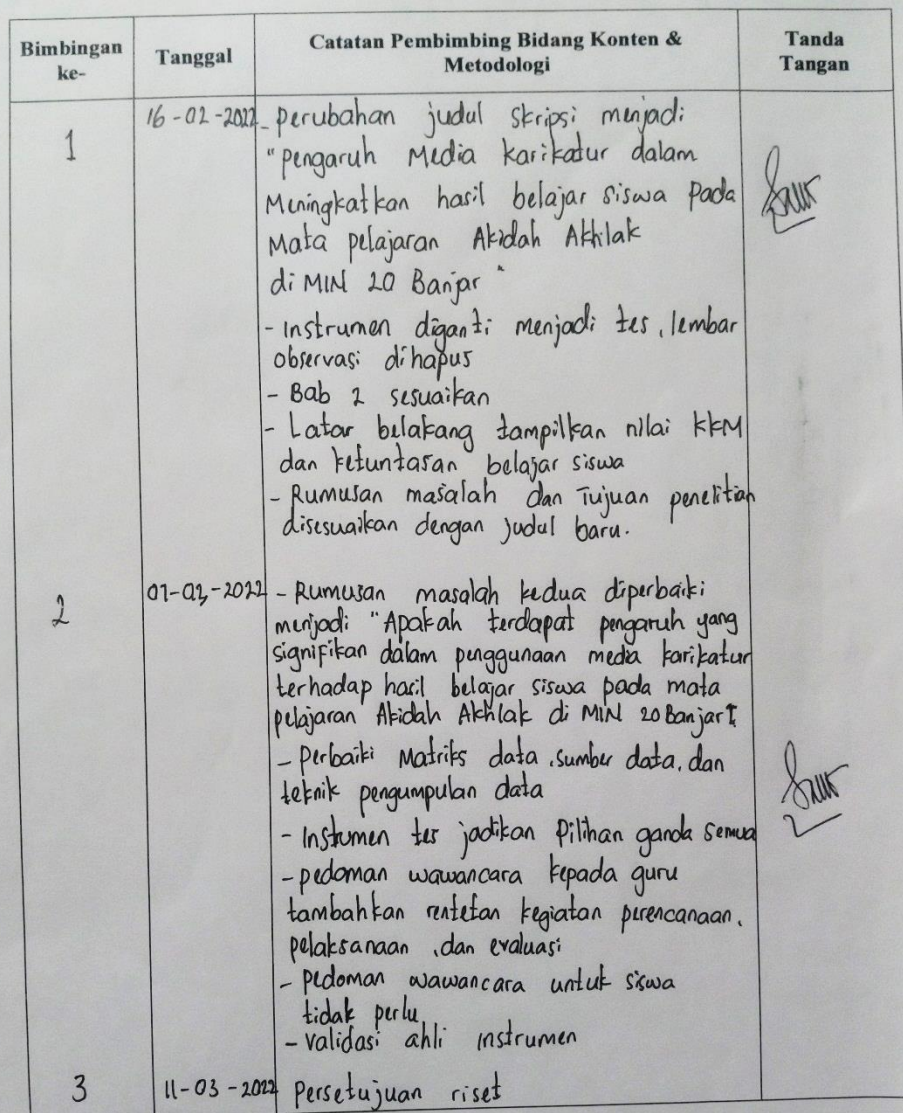 Bimbingan ke-
Tanggal
Catatan Pembimbing Bidang Konten & Metodologi
Tanda Tangan
1
16-02-2022
- perubahan judul skripsi menjadi
"pengaruh Media karikatur dalam
Meningkatkan hasil belajar siswa Pada
Mata pelajaran Akidah Akhlak
di MIN 20 Banjar"
- instrumen diganti menjadi tes, lembar
observasi dihapus
- Bab 2 sesuaikan
- Latar belakang tampilkan nilai KKM
dan ketuntasan belajar siswa
- Rumusan masalah dan Tujuan penelitian
disesuaikan dengan judul baru.
2
01-03-2022
- Rumusan masalah kedua diperbaiki
menjadi "Apakah terdapat pengaruh yang
signifikan dalam penggunaan media karikatur
terhadap hasil belajar siswa pada mata
pelajaran Akidah Akhlak di MIN 20 Banjar?
- Perbaiki Matriks data, sumber data, dan
teknik pengumpulan data
- Instumen tes jadikan Pilihan ganda semua
- pedoman wawancara kepada guru
tambahkan rentetan kegiatan perencanaan,
pelaksanaan, dan evaluasi
- pedoman wawancara untuk siswa
tidak perlu
- Validasi ahli instrumen
3
11-03-2022
Persetujuan riset